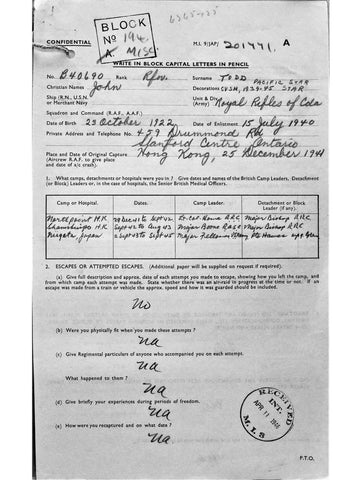 6565-425
BLOCK
No 194.
A. MISC.
CONFIDENTIAL
M.I. 9/JAP/ 201771. A
WRITE IN BLOCK CAPITAL LETTERS IN PENCIL
No. B40690 Rank Rfn. Surname TODD
Christian Names John Decorations CVSM, 1939-45 STAR PACIFIC STAR
Ship (R.N., U.S.N. or Merchant Navy) Unit & (Army) Royal Rifles of Cda
Squadron and Command (R.A.F., A.A.F.)
Date of Birth 23 October 1922 Date of Enlistment 15 July 1940
Private Address and Telephone No. 459 Drummond Rd
Stamford Centre Ontario
Place and Date of Original Capture Hong Kong, 25 December 1941
(Aircrew R.A.F. to give place
and date of a/c crash)
1. What camps, detachments or hospitals were you in? Give dates and names of the British Camp Leaders, Detachment
(or Block) Leaders or, in the case of hospitals, the Senior British Medical Officers.
Camp or Hospital. Dates. Camp Leader. Detachment or Block Leader (if any).
Northpoint H.K. Sept 42 Lt. Col. Home RRC Major Bishop RRC
Shamshuipo H.K. Sept 42 to Aug 43 Major Boone Major Bishop RRC
Niigata Japan Sept 43 to Sept 45 Major Fellows
2. ESCAPES OR ATTEMPTED ESCAPES. (Additional paper will be supplied on request if required).
(a) Give full description and approx. date of each attempt you made to escape, showing how you left the camp, and
from which camp each attempt was made. State whether there was air-raid in progress at the time or not. If an
escape was made from a train or vehicle the approx. speed and how it was guarded should be included.
No
(b) Were you physically fit when you made these attempts?
Na
(c) Give Regimental particulars of anyone who accompanied you on each attempt.
Na
What happened to them?
Na
(d) Give briefly your experiences during periods of freedom.
Na
(e) How were you recaptured and on what date?
Na
RECEIVED
INT.
APR 11 1946
M.I.9
P.T.O.